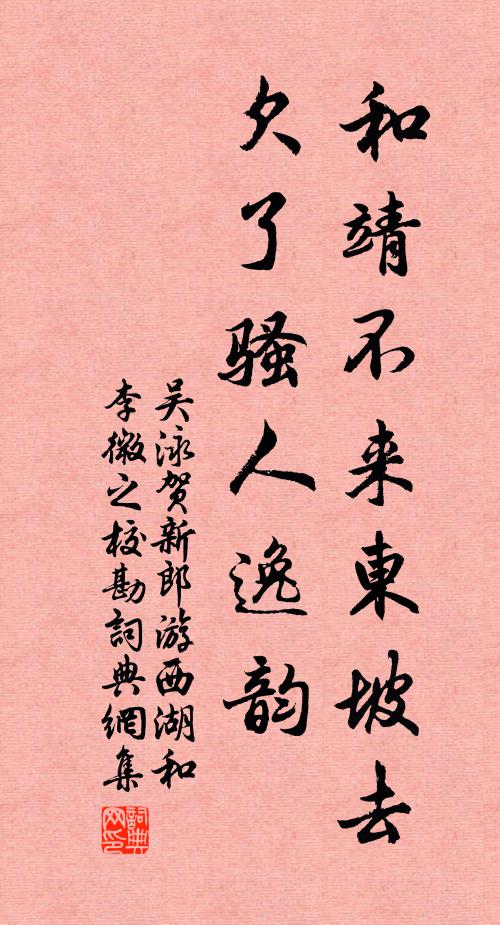 和靖不来東坡去
欠了骚人逸韵
吴泳贺新郎游西湖和
李微之校勘詞典網集
詞典网印